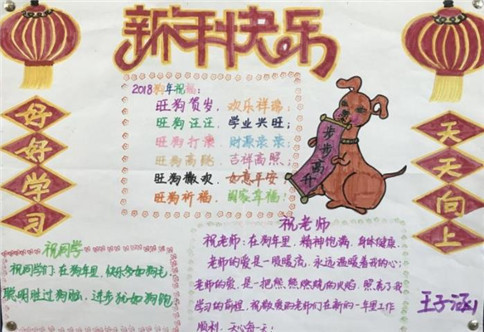 新年快乐
好好学习
天天向上
2018狗年祝福:
旺狗贺岁, 欢乐祥瑞;
旺狗汪汪, 学业兴旺;
旺狗打滚, 财源滚滚;
旺狗高跳, 吉祥高照;
旺狗撒欢, 如意平安
旺狗祈福, 阖家幸福!
步步高升
祝同学
祝同学们:在狗年里,快乐多如狗毛
聪明胜过狗脑,进步犹如狗跑
祝老师
祝老师:在狗年里,精神饱满,身体健康.
老师的爱是一股暖流,永远温暖着我的心;
老师的爱,是一把熊熊燃烧的火焰,照亮了我
学习的前程,祝敬爱的老师们在新的一年里工作
顺利,天心每一天!
王子涵